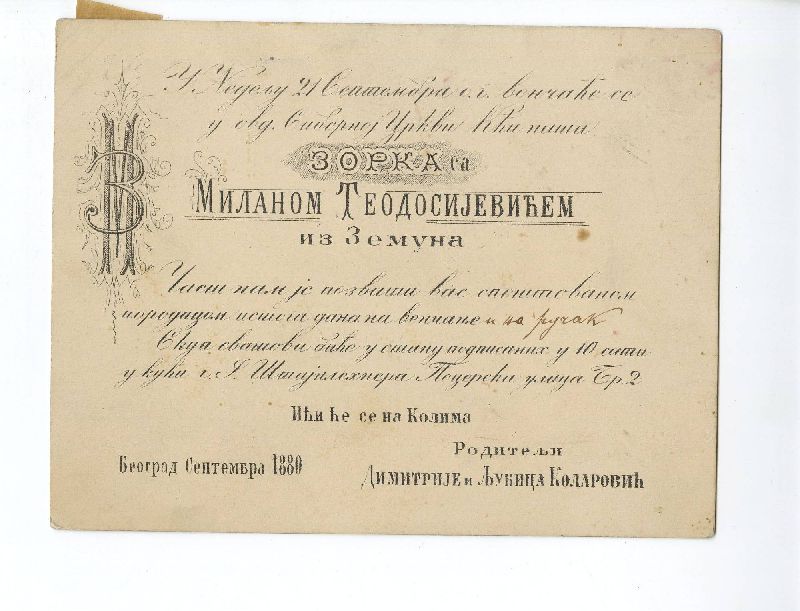 У Неделу 21 Септембра о.г. венчаће се
у овд. Саборној Цркви кћи наша
ЗОРКА са
МИЛАНОМ ТЕОДОСИЈЕВИЋЕМ
из Земуна
Част нам је позвати вас спештованом
породицом истога дана на венчање и на ручак
Скуп сватови биће у стану подписаних у 10 сати
у кући г. Штајнлехнера Поцерска улица Бр. 2
Ићи ће се на Колима
Родитељи
Београд Септембра 1880
Димитрије и Љубица Коларовић